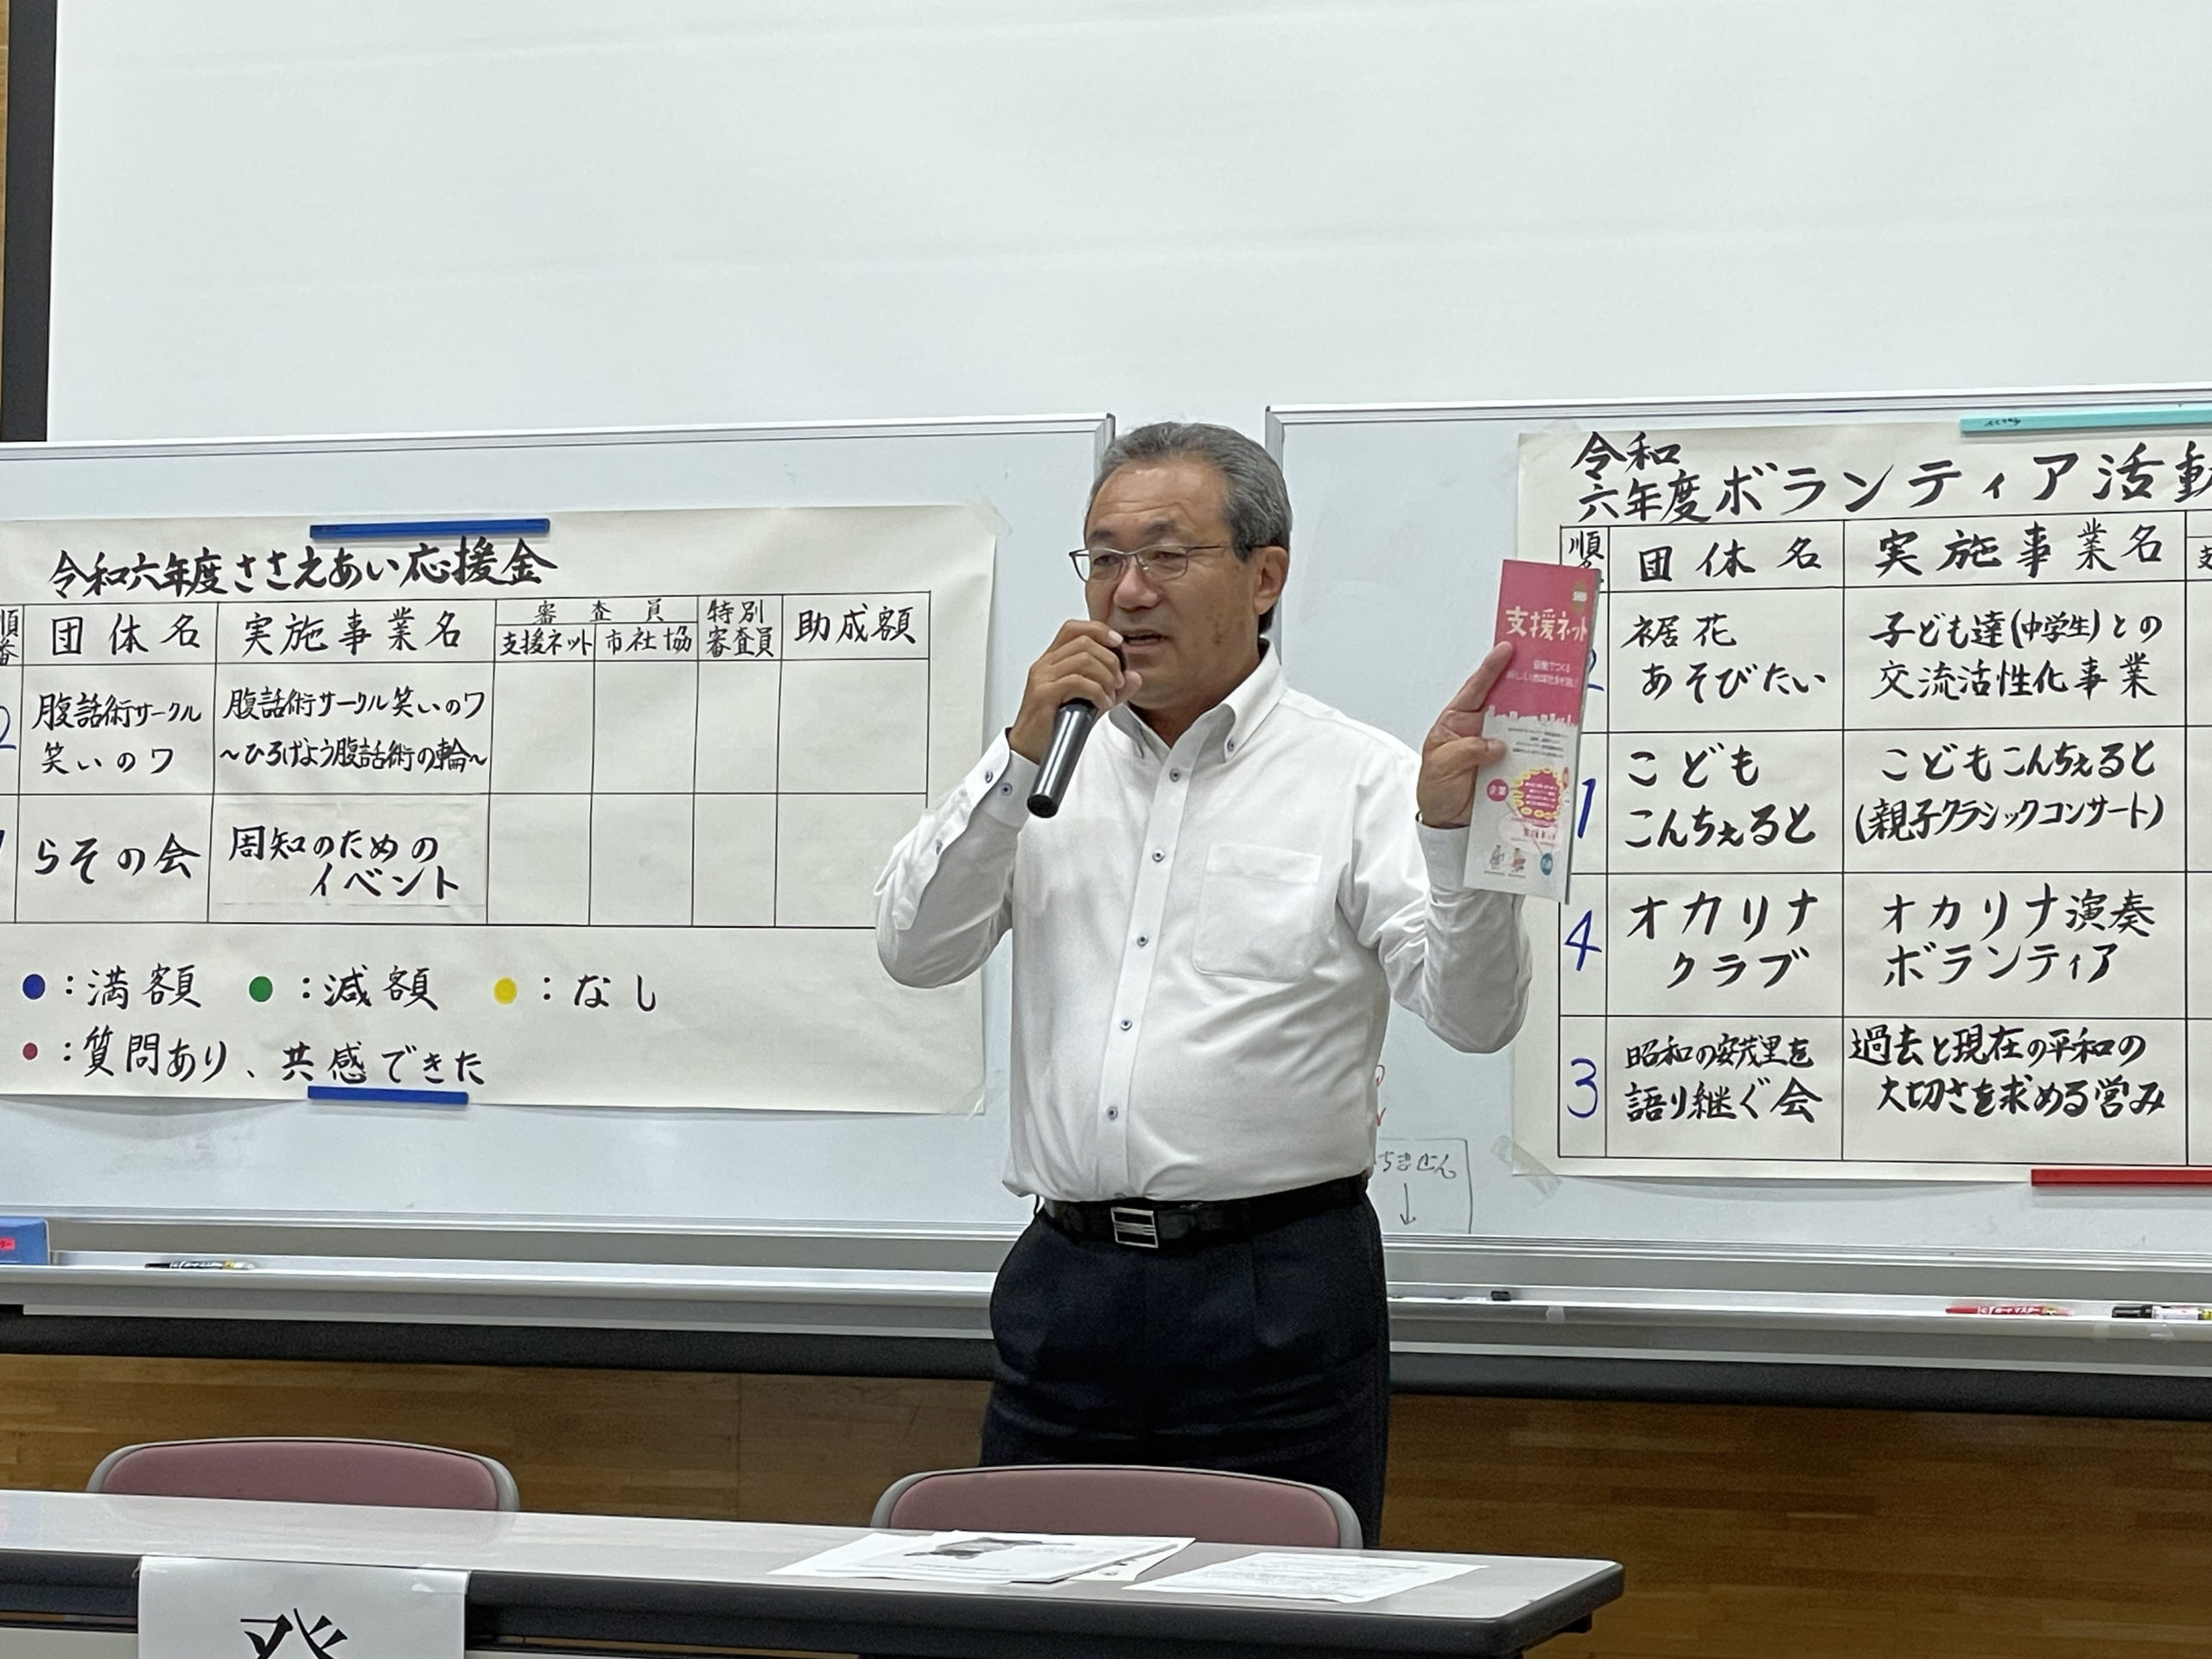 令和六年度ささえあい応援金
順番 団体名 実施事業名 審査員 特別審査員 助成額
支援ネット 市社協
2 腹話術サークル 笑いのワ
腹話術サークル笑いのワ
～ひろげよう腹話術の輪～
らその会
周知のための
イベント
:満額 :減額 :なし
:質問あり、共感できた
令和
六年度ボランティア活動
順 団体名 実施事業名 支
2 裾花
あそびたい
子ども達(中学生)との
交流活性化事業
1 こども
こんちぇると
こどもこんちぇると
(親子クラシックコンサート)
4 オカリナ
クラブ
オカリナ演奏
ボランティア
3 昭和の安茂里を
語り継ぐ会
過去と現在の平和の
大切さを求める営み
支援ネット
企業
ちません
↓